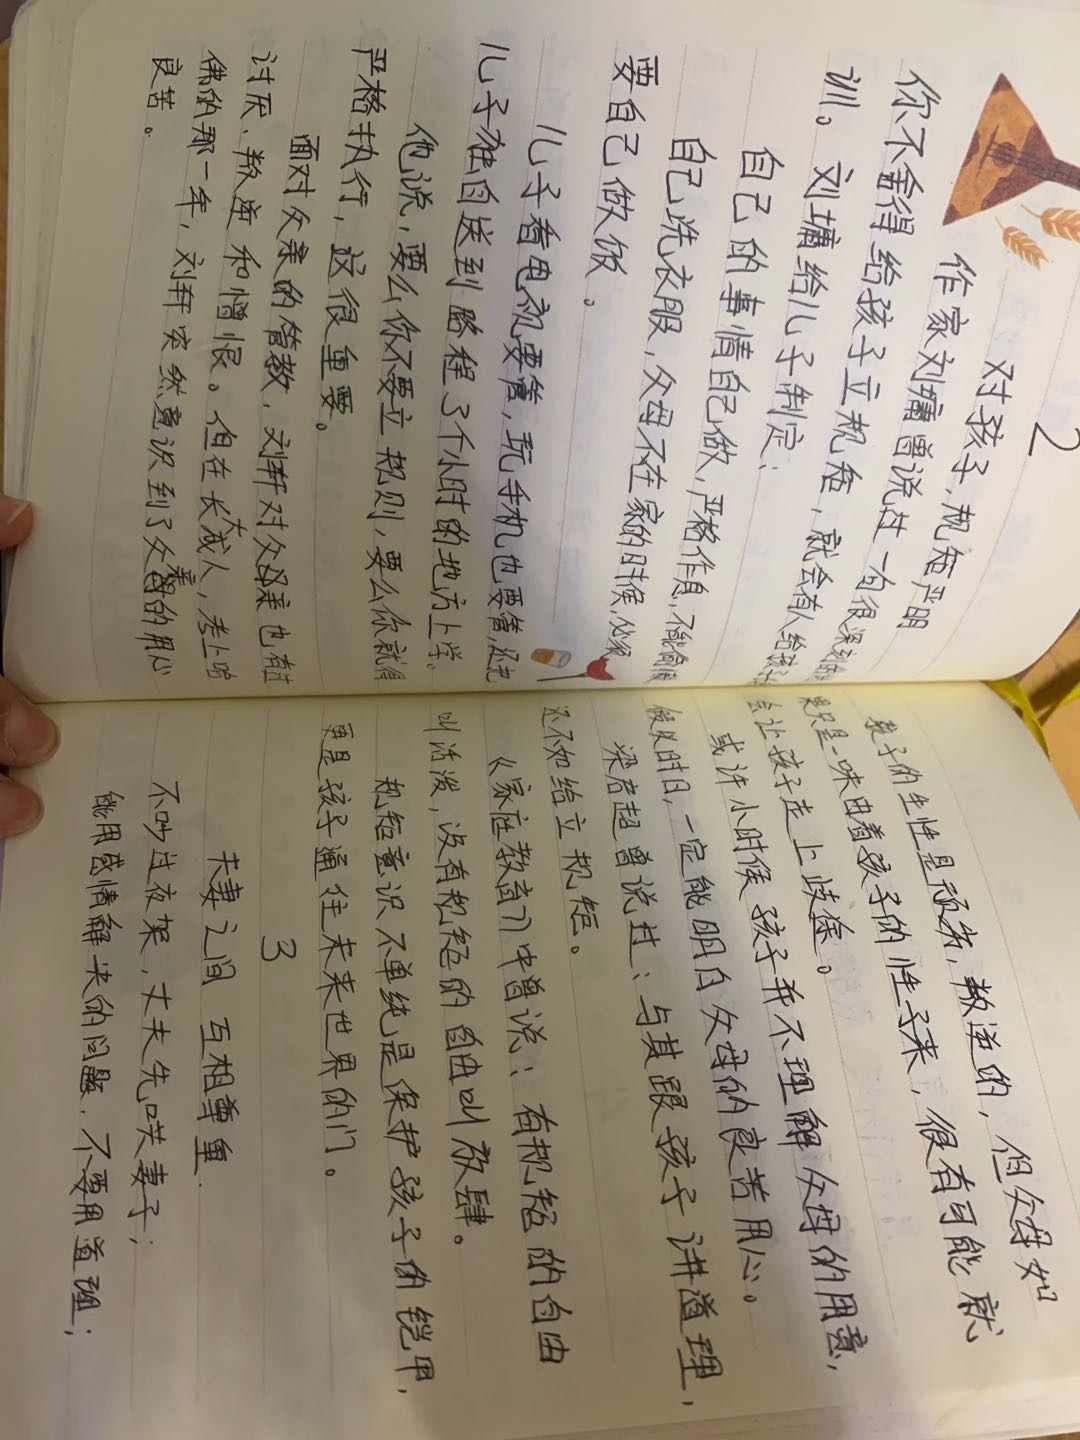 2
对孩子,规矩严明
作家刘墉曾说过一句很深刻的
你不舍得给孩子立规矩,就会有人给孩子
训。刘墉给儿子制定:
自己的事情自己做,严格作息,不能偷懒
自己洗衣服,父母不在家的时候,必须
要自己做饭。
儿子看电视要管,玩手机也要管,还把
儿子独自送到路程3个小时的地方上学。
他说,要么你不要立规则,要么你就得
严格执行,这很重要。
面对父亲的管教,刘轩对父亲也有过
讨厌、叛逆和憎恨。但在长大成人,考上哈
佛的那一年,刘轩突然意识到了父亲的用心
良苦。
孩子的生性是顽劣,叛逆的,但父母如
果只是一味由着孩子的性子来,很有可能就
会让孩子走上歧途。
或许小时候孩子并不理解父母的用意,
假以时日,一定能明白父母的良苦用心。
梁启超曾说过:与其跟孩子讲道理,
还不如给立规矩。
《家庭教育》中曾说:有规矩的自由
叫活泼,没有规矩的自由叫放肆。
规矩意识不单纯是保护孩子的铠甲,
更是孩子通往未来世界的门。
3
夫妻之间 互相尊重.
不吵过夜架,丈夫先哄妻子;
能用感情解决的问题,不要用道理;